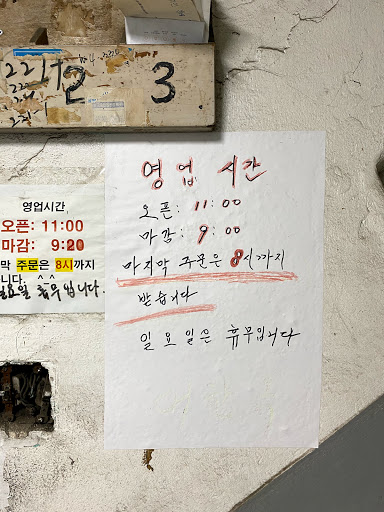 2
3
영업시간
오픈: 11:00
마감: 9:20
막 주문은 8시까지
니다. ^^
일요일 휴무입니다.
영업 시간
오픈: 11:00
마감: 9:00
마지막 주문은 8시까지
받습니다
일요일은 휴무입니다